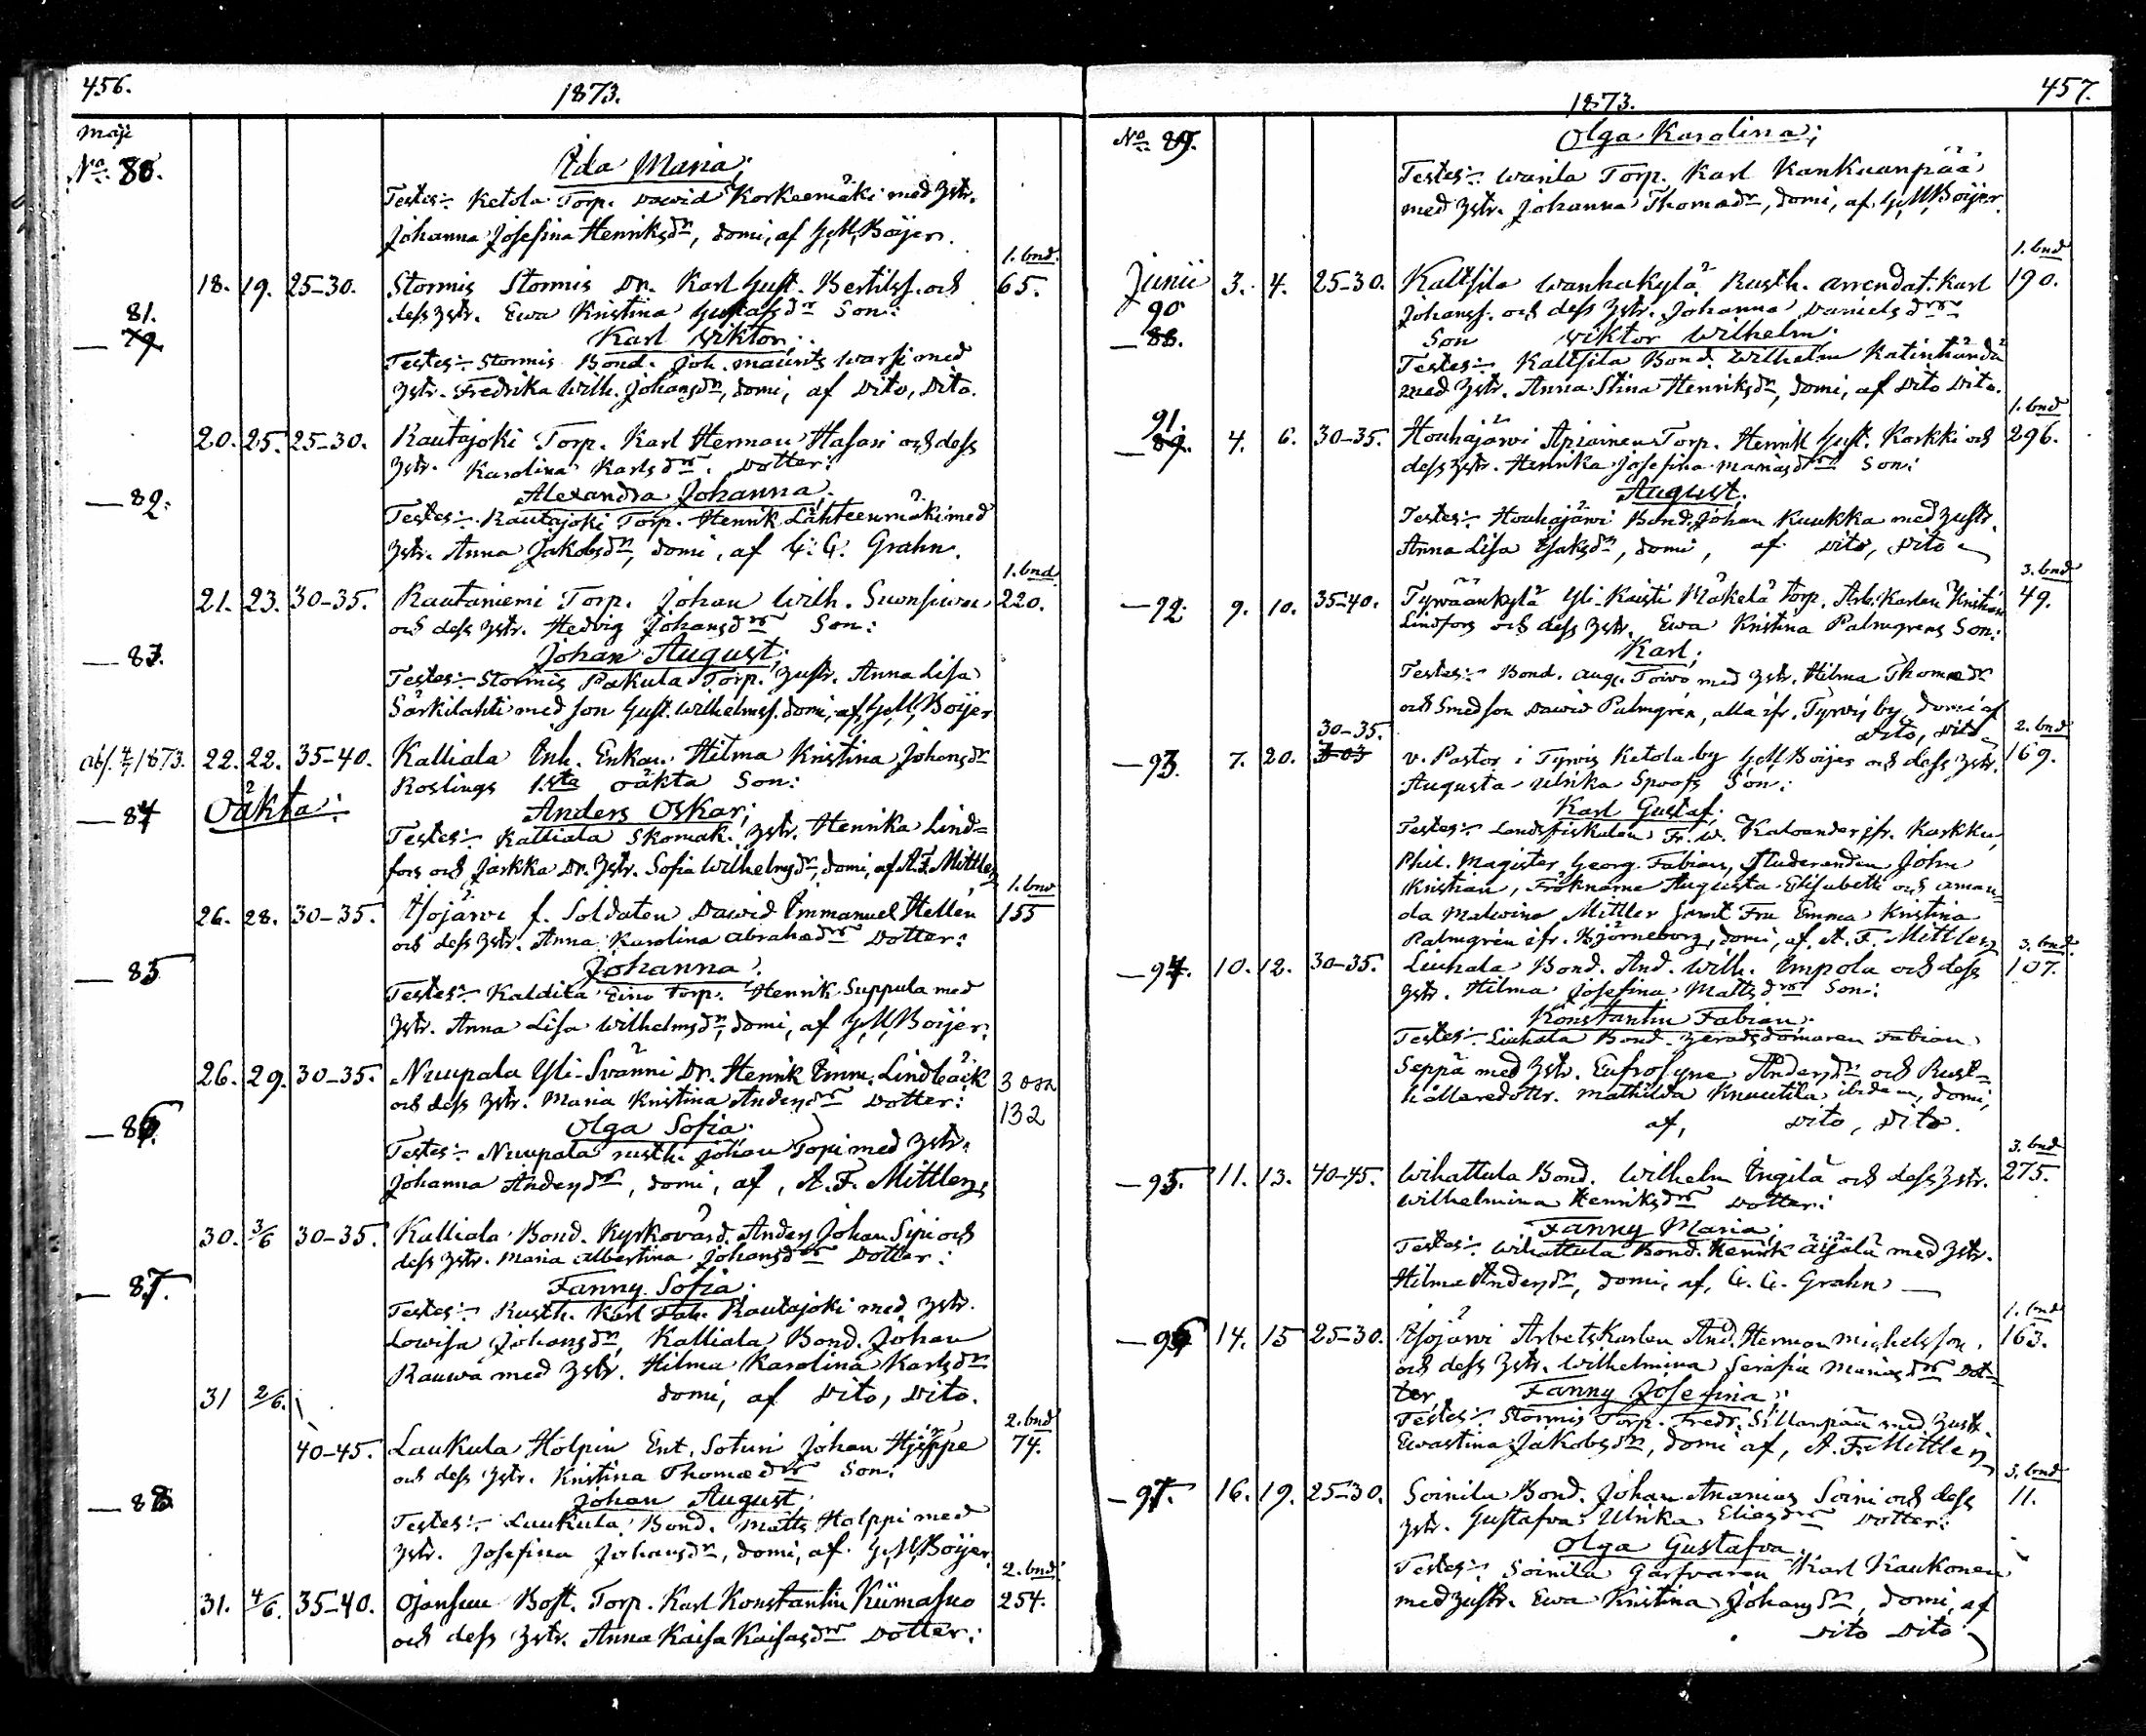 456.
1873.
Maji
No. 80.
Ida Maria;
Testes:- Ketola Torp. David Korkeemäki med Hstr.
Johanna Josefina Henriksdr, domi, af G.M. Boijer.
1. bnd.
18. 19. 25-30. Stormis Stormis Dr. Karl Gust. Bertilss. och 65.
dess Hstr. Ewa Kristina Gustafsdr Son:
81.
— 79
Karl Wiktor;
Testes:- Stormis Bond. Joh. Maurits Warsi med
Hstr. Fredrika Wilh. Johansdr, domi, af Dito, Dito.
20. 25. 25-30. Rautajoki Torp. Karl Herman Hasari och dess
Hstr. Karolina Karlsdr. Dotter:
— 82.
Alexandra Johanna;
Testes:- Rautajoki Torp. Henrik Lähteenmäki med
Hstr. Anna Jakobsdr, domi, af C. G. Grahn.
1. bnd.
21. 23. 30-35. Rautaniemi Torp. Johan Wilh. 220.
och dess Hstr. Hedvig Johansdr Son:
— 83.
Johan August;
Testes:- Stormis Pakula Torp. Hustr. Anna Lisa
Särkilahti med son Gust. Wilhelmss. domi, af G.M. Boijer
22. 22. 35-40. Kalliala Inh. Enkan Hilma Kristina Johansdr
Roslings 1.sta oäkta Son:
— 84 Oäkta:
Anders Oskar;
Testes:- Kalliala Skomak. Hstr. Henrika Lind=
fors och Jaskka Dr. Hstr. Sofia Wilhelmsdr, domi, af A.F. Mittler
1. bnd
26. 28. 30-35. Isojärvi f. Soldaten David Immanuel Hellén 155
och dess Hstr. Anna Karolina Abrahadr Dotter:
— 85
Johanna;
Testes:- Kaldila Eino Torp. Henrik Suppula med
Hstr. Anna Lisa Wilhelmsdr, domi, af G.M. Boijer.
26. 29. 30-35. Nuupala Yli-Svänni Dr. Henrik Imm. Lindbäck 3 osa
och dess Hstr. Maria Kristina Andersdr Dotter: 132
— 86.
Olga Sofia;
Testes:- Nuupala rusth. Johan Topi med Hstr.
Johanna Andersdr, domi, af, A. F. Mittler
30. 3/6 30-35. Kalliala Bond. Kyrkovärd. Anders Johan Sipi och
dess Hstr. Maria Albertina Johansdr Dotter:
— 87.
Fanny Sofia;
Testes:- Rusth. Karl Fab. Rautajoki med Hstr.
Lowisa Johansdr, Kalliala Bond. Johan
Rauwa med Hstr. Hilma Karolina Karlsdr
31 2/6. domi, af Dito, Dito.
2. bnd
40-45. Laukula Holpin Ent. Soturi Johan 74.
och dess Hstr. Kristina Thomædr Son:
— 88
Johan August
Testes:- Laukula Bond. Matts Holppi med
Hstr. Josefina Johansdr, domi, af G.M. Boijer.
2. bnd.
31. 4/6. 35-40. Ojansuu Bost. Torp. Karl Konstantin Kiimasuo 254.
och dess Hstr. Anna Kaisa Kaisasdr Dotter:
457.
1873.
No. 89.
Olga Karolina;
Testes:- Warila Torp. Karl Kankaanpää
med Hstr. Johanna Thomædr, domi, af G.M. Boijer
1. bnd
Junii 3. 4. 25-30. Kaltsila Wanhakylä Rusth. arrendat. Karl 190.
90 Johanss. och dess Hstr. Johanna Danielsdr
— 88. Son Wiktor Wilhelm;
Testes:- Kaltsila Bond. Wilhelm Katinhändä
med Hstr. Anna Stina Henriksdr, domi, af Dito Dito.
1. bnd
91.
— 89. 4. 6. 30-35. Houhajärwi Apiainen Torp. Henrik Gust. Korkki och 296.
dess Hstr. Henrika Josefina Mariasdr Son:
August;
Testes:- Houhajärwi Bond. Johan Kuukka med Hustr.
Anna Lisa Isaksdr, domi, af Dito, Dito
3. bnd
— 92. 9. 10. 35-40. Tyrwäänkylä Yli-Kaisti Mäkelä Torp. Arb. Karlen Kristian 49.
Lindfors och dess Hstr. Ewa Kristina Palmgrens Son:
Karl;
Testes:- Bond. Aug. Toivo med Hstr. Hilma Thomædr
och Smedson David Palmgrén, alla ifr. Tyrvis by, domi af
30-35. Dito, Dito 2. bnd
— 93. 7. 20. v. Pastor i Tyrvis Ketola by G.M. Boijer och dess Hstr. 169.
Augusta Ulrika Spoofs Son:
Karl Gustaf;
Testes:- Landsfiskalen Fr. W. Kaloander ifr. Karkku,
Phil. Magister Georg. Fabian, Studeranden John
Kristian, Fröknarna Augusta Elisabeth och Aman=
da Malwina Mittler samt Fru Emma Kristina
Palmgrén ifr. Björneborg, domi, af, A. F. Mittler
3. bnd.
— 94. 10. 12. 30-35. Liuhala Bond. And. Wilh. Impola och dess 107.
Hstr. Hilma Josefina Mattsdr Son:
Konstantin Fabian;
Testes:- Liuhala Bond. Heradsdomaren Fabian
Seppä med Hstr. Eufrosyne Andersdr och Rust=
hållaredottr. Mathilda Knuutila ibidem, domi,
af, Dito, Dito.
3. bnd
— 95. 11. 13. 40-45. Wihattula Bond. Wilhelm Ingilä och dess Hstr. 275.
Wilhelmina Henriksdr Dotter:
Fanny Maria;
Testes:- Wihattula Bond. Henrik Äijälä med Hstr.
Hilma Andersdr, domi, af, C. G. Grahn
1. bnd
— 96 14. 15 25-30. Isojärwi Arbetskarlen And. Herman Michelsson 163.
och dess Hstr. Wilhelmina Serafia Mariasdr Dot=
ter, Fanny Josefina;
Testes:- Stormis Torp. Fredr. Sillanpää med Hustr.
Ewastina Jakobsdr, domi af, A. F. Mittler
3. bnd
— 97. 16. 19. 25-30. Soinila Bond. Johan Ananias Soini och dess 11.
Hstr. Gustafva Ulrika Eliasdr Dotter:
Olga Gustafva;
Testes:- Soinila Garfvaren Karl Kaukonen
med Hustr. Ewa Kristina Johansdr, domi, af
Dito Dito